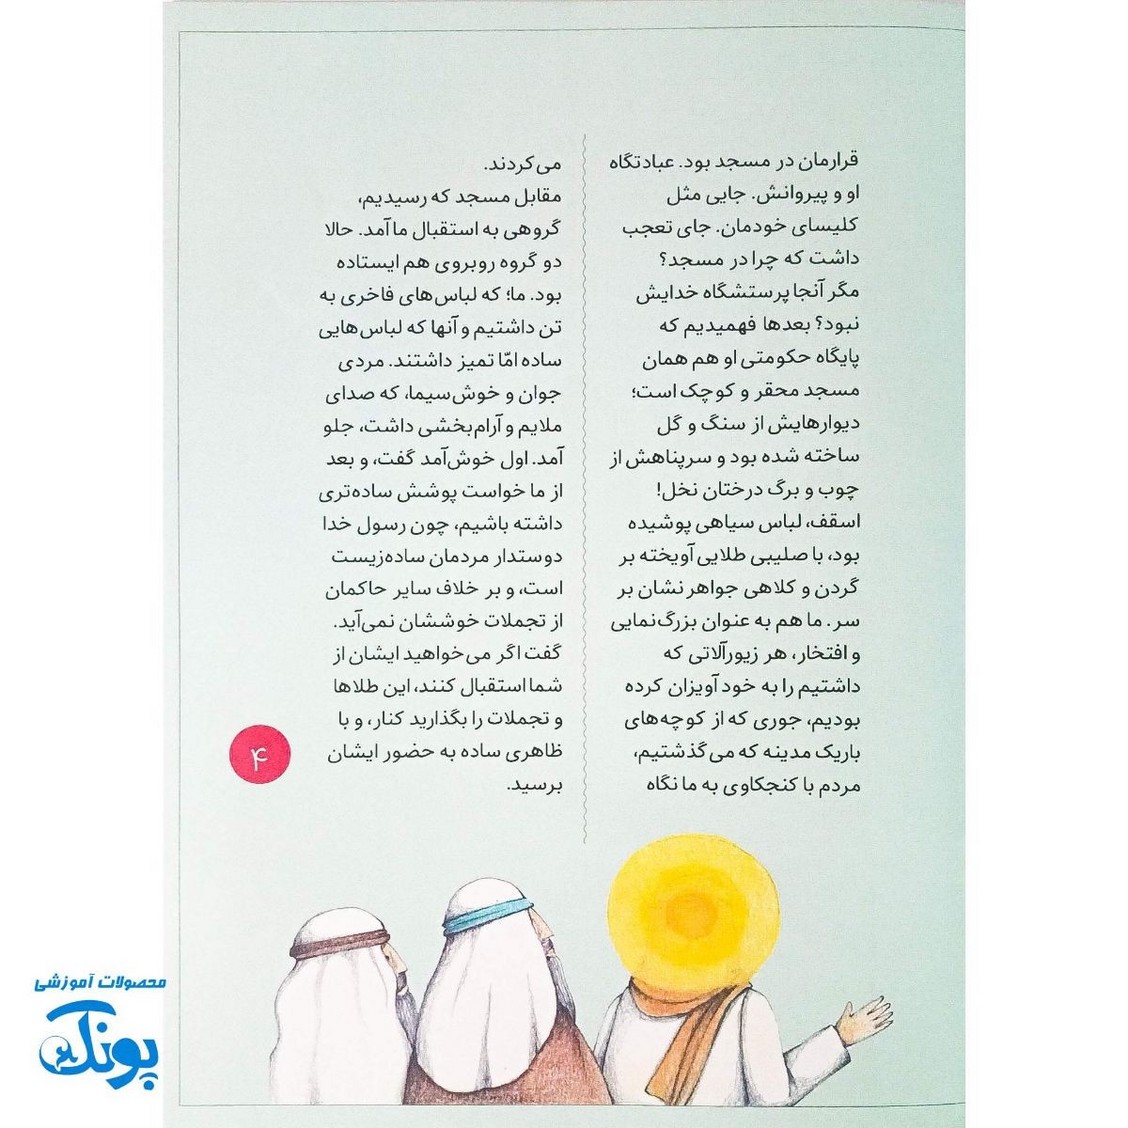 قرارمان در مسجد بود. عبادتگاه
او و پیروانش. جایی مثل
کلیسای خودمان. جای تعجب
داشت که چرا در مسجد؟
مگر آنجا پرستشگاه خدایش
نبود؟ بعدها فهمیدیم که
پایگاه حکومتی او هم همان
مسجد محقر و کوچک است؛
دیوارهایش از سنگ و گل
ساخته شده بود و سرپناهش از
چوب و برگ درختان نخل!
اسقف، لباس سیاهی پوشیده
بود، با صلیبی طلایی آویخته بر
گردن و کلاهی جواهرنشان بر
سر. ما هم به عنوان بزرگ‌نمایی
و افتخار، هر زیورآلاتی که
داشتیم را به خود آویزان کرده
بودیم، جوری که از کوچه‌های
باریک مدینه که می‌گذشتیم،
مردم با کنجکاوی به ما نگاه
می‌کردند.
مقابل مسجد که رسیدیم،
گروهی به استقبال ما آمد. حالا
دو گروه روبروی هم ایستاده
بود. ما؛ که لباس‌های فاخری به
تن داشتیم و آنها که لباس‌هایی
ساده امّا تمیز داشتند. مردی
جوان و خوش‌سیما، که صدای
ملایم و آرام‌بخشی داشت، جلو
آمد. اول خوش‌آمد گفت، و بعد
از ما خواست پوشش ساده‌تری
داشته باشیم، چون رسول خدا
دوستدار مردمان ساده‌زیست
است، و بر خلاف سایر حاکمان
از تجملات خوششان نمی‌آید.
گفت اگر می‌خواهید ایشان از
شما استقبال کنند، این طلاها
و تجملات را بگذارید کنار، و با
ظاهری ساده به حضور ایشان
برسید.
۴
محصولات آموزشی
پونک